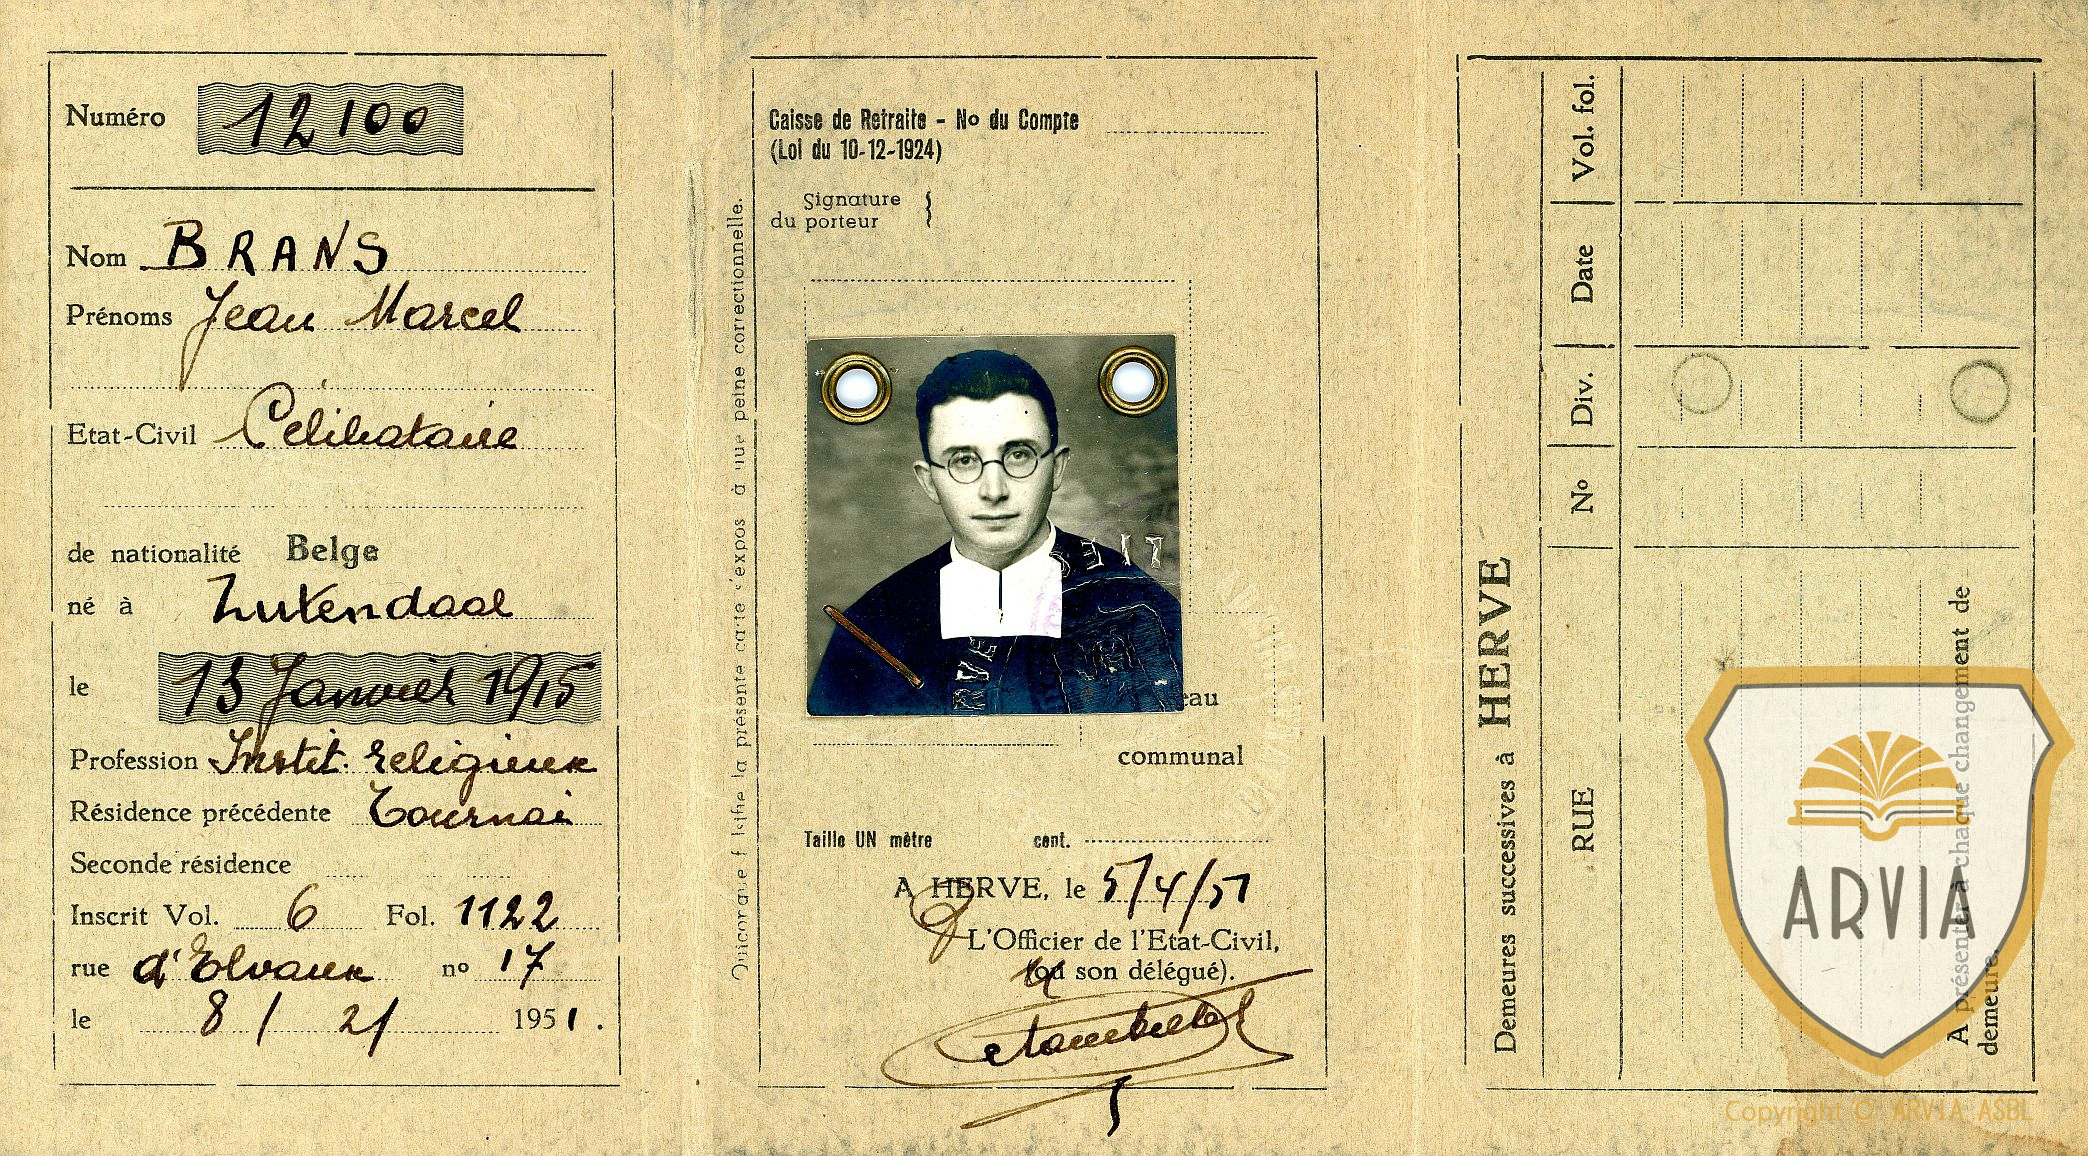 Numéro 12100
Nom BRANS
Prénoms Jean Marcel
Etat-Civil Célibataire
de nationalité Belge
né à Zutendaal
le 13 Janvier 1915
Profession Instit. religieux
Résidence précédente Tournai
Seconde résidence
Inscrit Vol. 6 Fol. 1122
rue d'Elvaux nº 17
le 8/ 2/ 1951.
Quiconque falsifie la présente carte s'expose à une peine correctionnelle.
Caisse de Retraite - No du Compte
(Loi du 10-12-1924)
Signature
du porteur }
eau
communal
Taille UN mètre cent.
A HERVE, le 5/4/51
L'Officier de l'Etat-Civil,
(ou son délégué).
Demeures successives à HERVE
RUE Nº Div. Date Vol. fol.
A présenter à chaque changement de
demeure.
ARVIA
Copyright © ARVIA ASBL